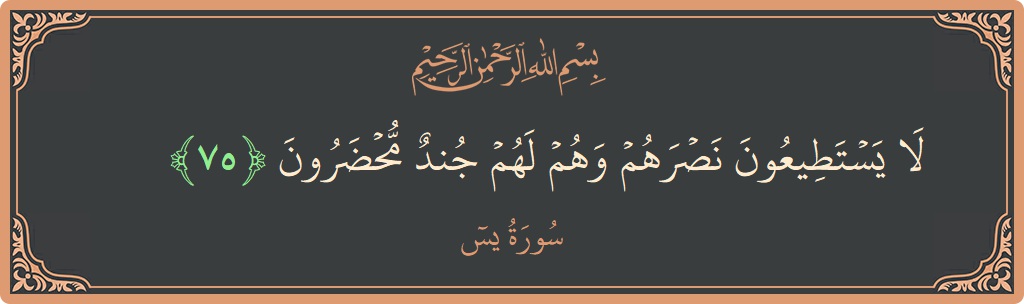 بِسْمِ اللهِ الرَّحْمٰنِ الرَّحِيْمِ
لَا يَسۡتَطِيعُونَ نَصۡرَهُمۡ وَهُمۡ لَهُمۡ جُندٌ مُّحۡضَرُونَ ﴿٧٥﴾
سُورَةُ يسٓ